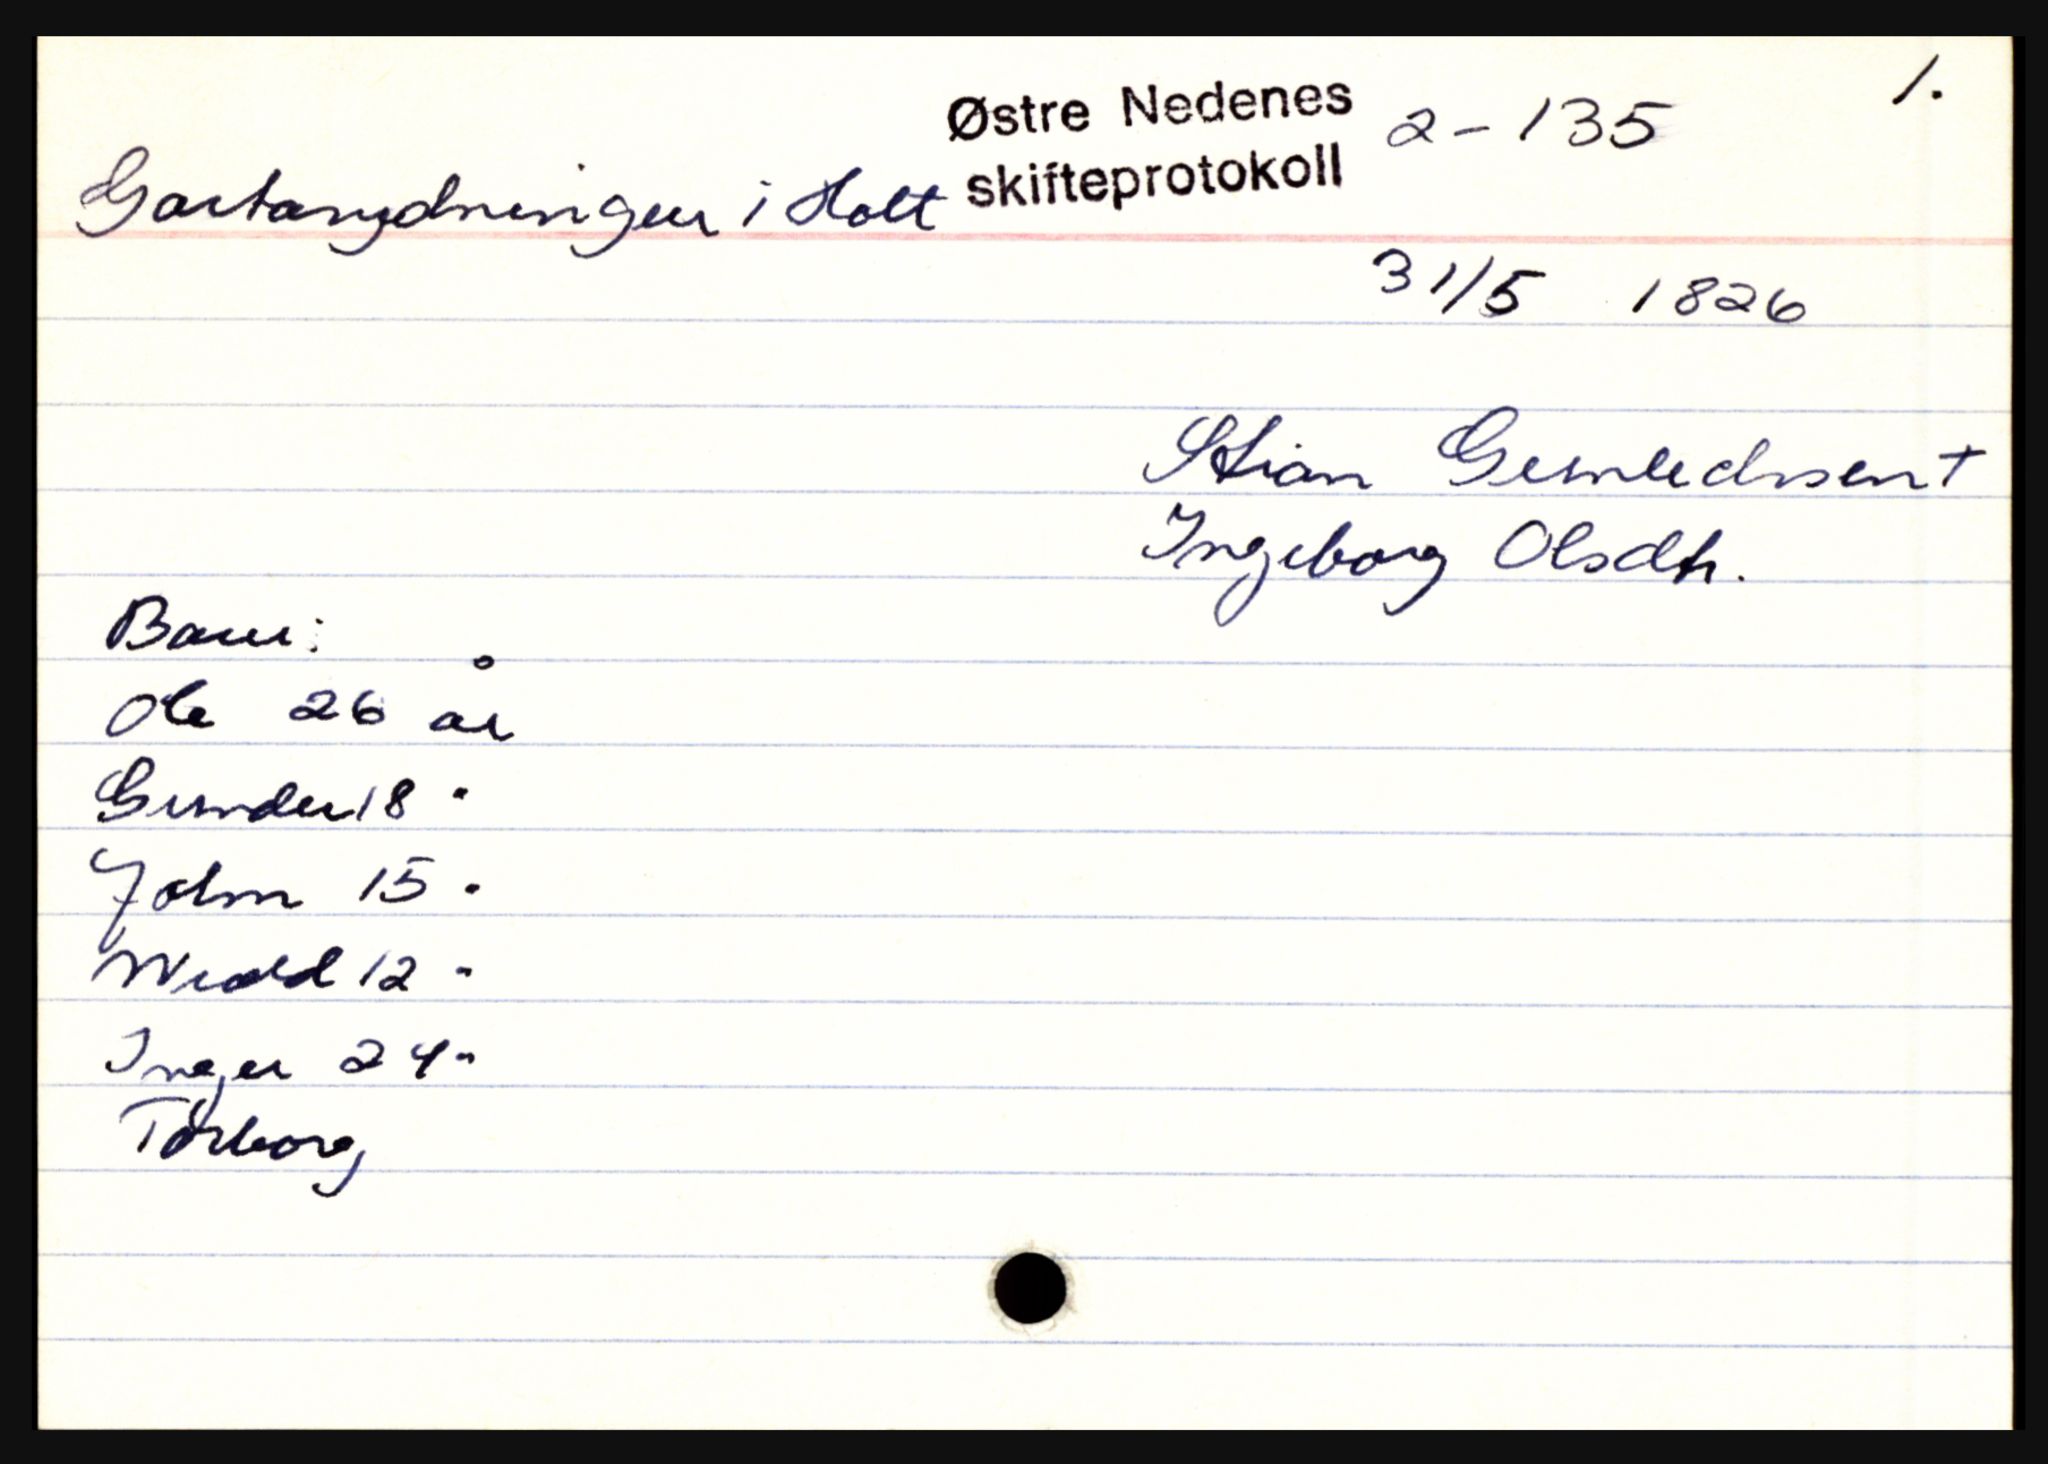 1.
Østre Nedenes 2-135
skifteprotokoll
Gartarydningen i Holt
31/5 1826
Stian Gunlechsen +
Ingeborg Olsdtr.
Barn:
Ole 26 år
Gunder 18 "
John 15 "
12 "
Inger 24 "
Torborg